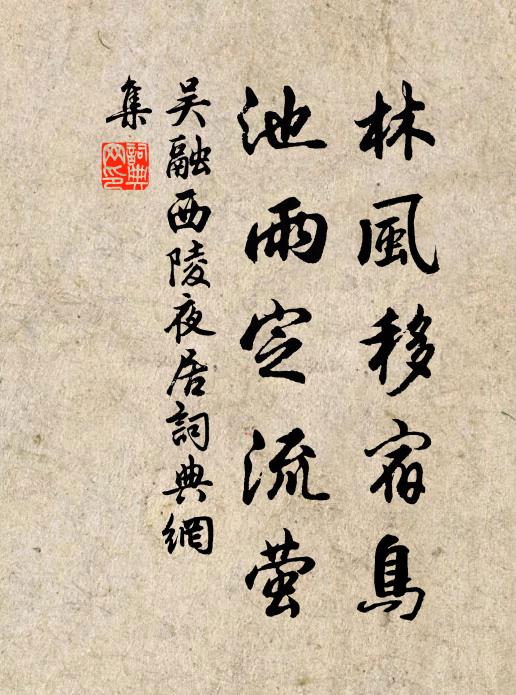 林風移宿鳥
池雨定流萤
吴融西陵夜居詞典網
集
詞典
网印